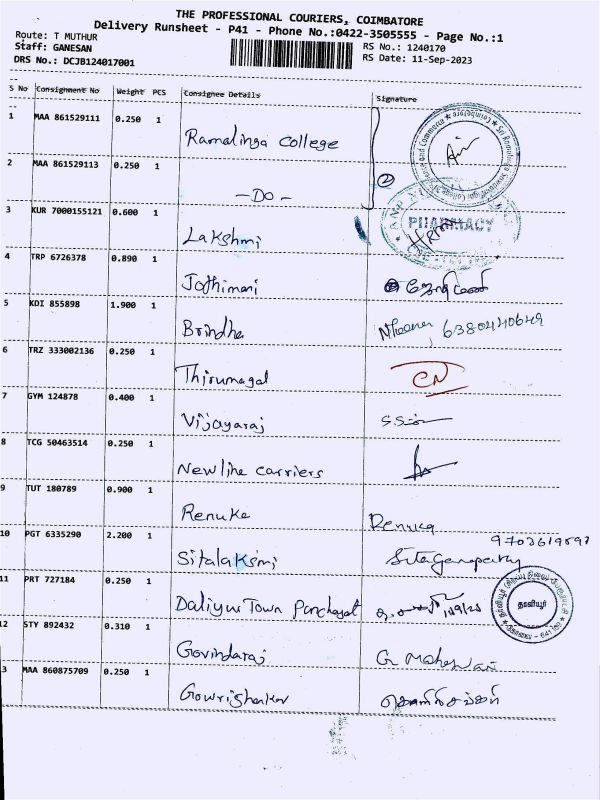 THE PROFESSIONAL COURIERS, COIMBATORE
Delivery Runsheet - P41 - Phone No.:0422-3505555 - Page No.:1
Route: T MUTHUR
RS No.: 1240170
Staff: GANESAN
RS Date: 11-Sep-2023
DRS No.: DCJB124017001
S No Consignment No Weight PCS Consignee Details Signature
1 MAA 861529111 0.250 1 Ramalinga College
2 MAA 861529113 0.250 1 -DO- 2
PHARMACY
3 KUR 7000155121 0.600 1 Lakshmi
4 TRP 6726378 0.890 1 Jothimani ஜோதிமணி
5 KDI 855898 1.900 1 Brindha 6380440649
6 TRZ 333002136 0.250 1 Thirumagal
7 GYM 124878 0.400 1 Vijayaraj
8 TCG 50463514 0.250 1 Newline carriers
9 TUT 180789 0.900 1 Renuke Renuka
10 PGT 6335290 2.200 1 Sitalaksmi
11 PRT 727184 0.250 1 Daliyur Town Panchayat
தாளியூர்
12 STY 892432 0.310 1 Govindaraj G Maheswari
3 MAA 860875709 0.250 1 Gowrishankar கௌரிசங்கர்